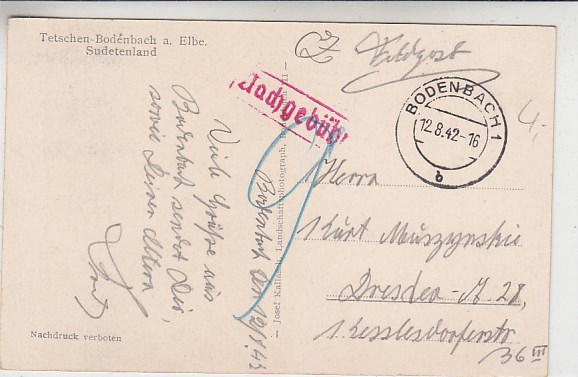 Tetschen-Bodenbach a. Elbe.
Sudetenland
Feldpost
Nachgebühr
BODENBACH 1
12.8.42-16
b
4,-
Viele Grüße aus
Bodenbach sendet Dir,
sowie Deinen Eltern
Bodenbach den
Josef Landschaftsphotograph,
Herrn
Kurt Muszynski
Dresden-A. 28,
Kesselsdorferstr
36 III
Nachdruck verboten